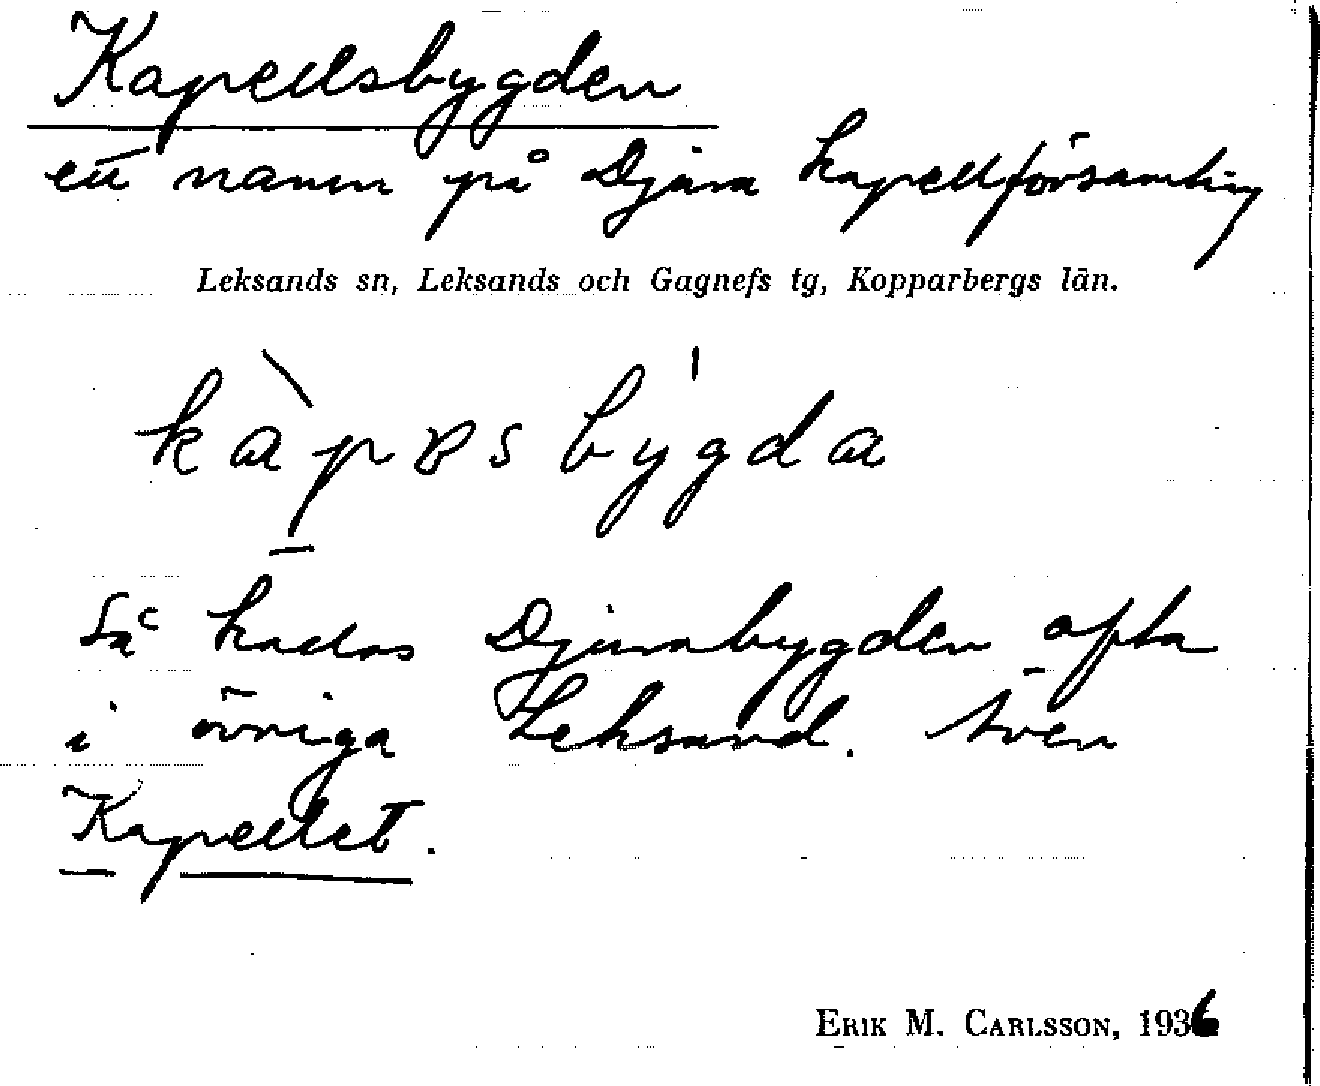 Kapellsbygden
ett namn på Djura kapellförsamling
Leksands sn, Leksands och Gagnefs tg, Kopparbergs län.
så kallas Djurabygden ofta
i övriga Leksand. Även
Kapellet.
ERIK M. CARLSSON, 1936